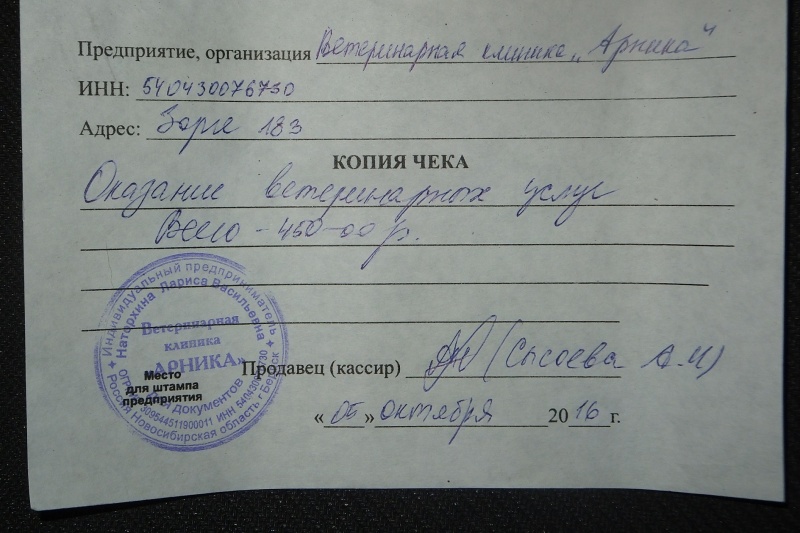 Предприятие, организация Ветеринарная клиника „Арника"
ИНН: 540430076730
Адрес: Зоря 183
КОПИЯ ЧЕКА
Оказание ветеринарных услуг
Всего - 450-00 р.
Индивидуальный предприниматель
Наторхина Лариса Васильевна
Ветеринарная
клиника
«АРНИКА»
документов
Россия Новосибирская область г Бердск
Место
для штампа
предприятия
Продавец (кассир) (Сысоева А.И)
«05» октября 2016 г.